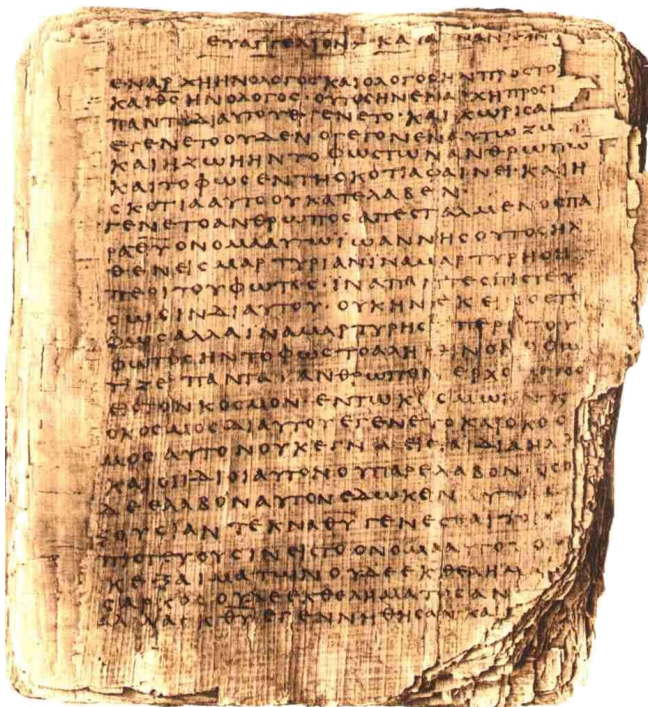 ΕΥΑΓΓΕΛΙΟΝ ΚΑΤΑ
ΕΝΑΡΧΗΗΝΟΛΟΓΟϹΚΑΙΟΛΟΓΟϹΗΝΠΡΟϹΤΟ
ΚΑΙΘϹΗΝΟΛΟΓΟϹ·ΟΥΤΟϹΗΝΕΝΑΡΧΗΠΡΟϹ
ΠΑΝΤΑΔΙΑΥΤΟΥΕΓΕΝΕΤΟ·ΚΑΙΧΩΡΙϹΑ
ΕΓΕΝΕΤΟΟΥΔΕΝΟΓΕΓΟΝΕΝΑΥΤΩΖΩ
ΚΑΙΗΖΩΗΗΝΤΟΦΩϹΤΩΝΑΝΘΡΩΠΩ
ΚΑΙΤΟΦΩϹΕΝΤΗϹΚΟΤΙΑΦΑΙΝΕΙ·ΚΑΙΗ
ϹΚΟΤΙΑΑΥΤΟΟΥΚΑΤΕΛΑΒΕΝ·
ΕΓΕΝΕΤΟΑΝΘΡΩΠΟϹΑΠΕϹΤΑΛΜΕΝΟϹΠΑ
ΡΑΘΥΟΝΟΜΑΑΥΤΩΙΩΑΝΝΗϹΟΥΤΟϹΗΛ
ΘΕΝΕΙϹΜΑΡΤΥΡΙΑΝΙΝΑΜΑΡΤΥΡΗϹΗ
ΠΕΡΙΤΟΥΦΩΤΟϹ·ΙΝΑΠΑΝΤΕϹΠΙϹΤΕΥ
ϹΩϹΙΝΔΙΑΥΤΟΥ·ΟΥΚΗΝΕΚΕΙΝΟϹΤΟ
ΦΩϹΑΛΛΑΙΝΑΜΑΡΤΥΡΗϹΗΠΕΡΙΤΟΥ
ΦΩΤΟϹΗΝΤΟΦΩϹΤΟΑΛΗΘΙΝΟΝΟΦΩ
ΤΙΖΕΙΠΑΝΤΑΑΝΘΡΩΠΟΝΕΡΧΟΜΕΝΟ
ΕΙϹΤΟΝΚΟϹΜΟΝ·ΕΝΤΩΚΟϹΜΩΗΝΚ
ΟΚΟϹΜΟϹΔΙΑΥΤΟΥΕΓΕΝΕΤΟΚΑΙΟΚΟϹ
ΜΟϹΑΥΤΟΝΟΥΚΕΓΝΩΕΙϹΤΑΙΔΙΑΗΛΘ
ΚΑΙΟΙΙΔΙΟΙΑΥΤΟΝΟΥΠΑΡΕΛΑΒΟΝ·ΟϹΟ
ΔΕΕΛΑΒΟΝΑΥΤΟΝΕΔΩΚΕΝΑΥΤΟΙϹ
ΞΟΥϹΙΑΝΤΕΚΝΑΘΥΓΕΝΕϹΘΑΙΤΟΙϹ
ΠΙϹΤΕΥΟΥϹΙΝΕΙϹΤΟΟΝΟΜΑΑΥΤΟΥΟ
ΚΕΞΑΙΜΑΤΩΝΟΥΔΕΕΚΘΕΛΗΜΑ
ϹΑΡΚΟϹΟΥΔΕΕΚΘΕΛΗΜΑΤΟϹΑΝ
ΑΛΛΑΕΚΘΥΕΓΕΝΝΗΘΗϹΑΝΚΑΙ